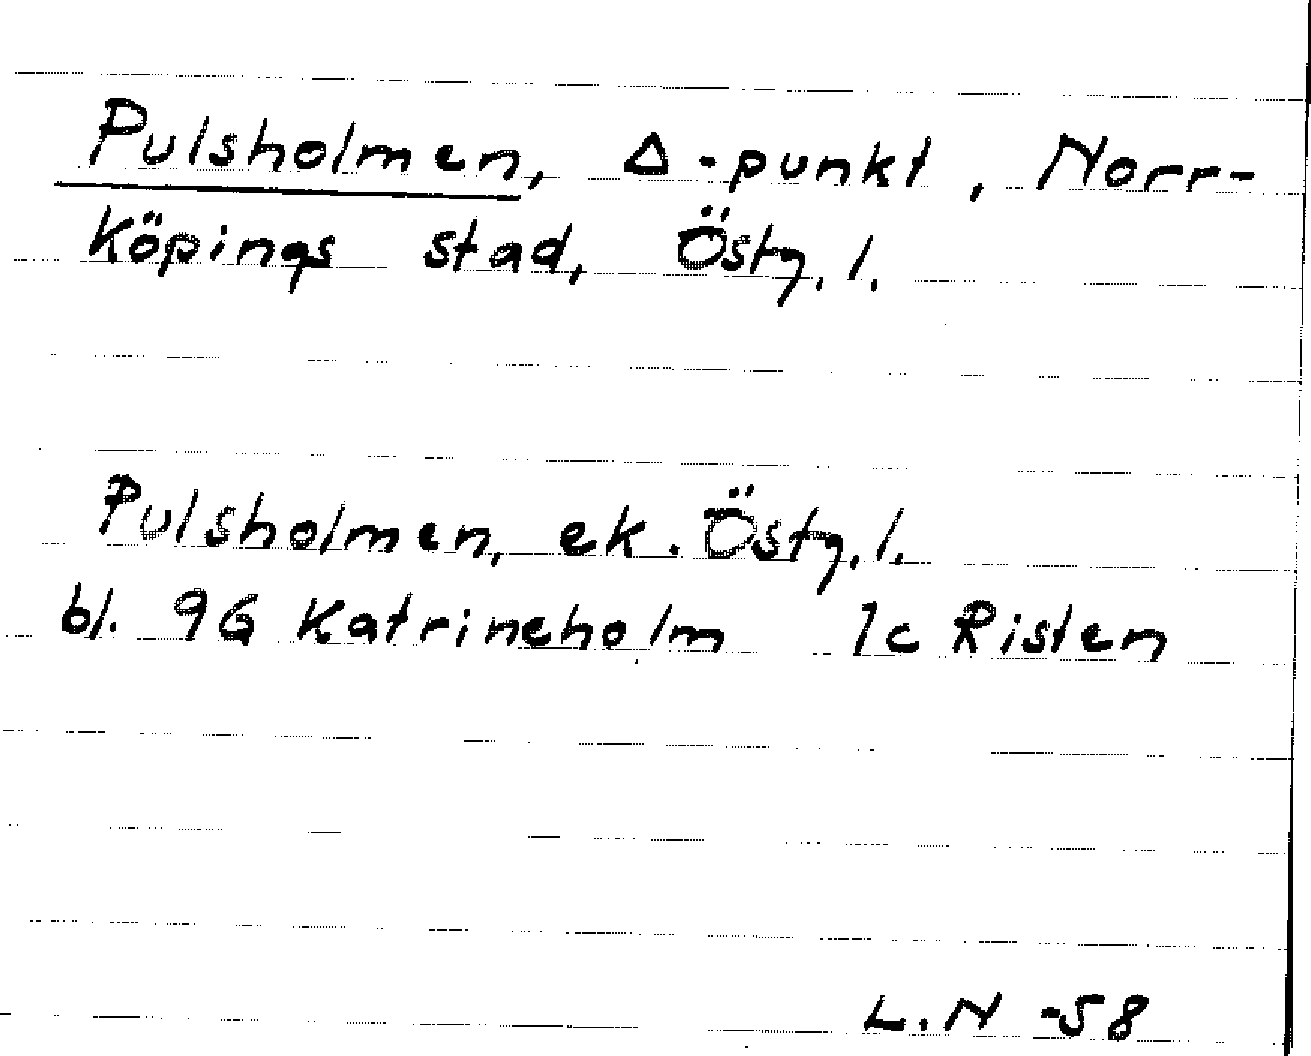 Pulsholmen, Δ-punkt, Norr-
köpings stad, Östg. l.
Pulsholmen, ek. Östg. l.
bl. 9G Katrineholm 1c Risten
L.N -58